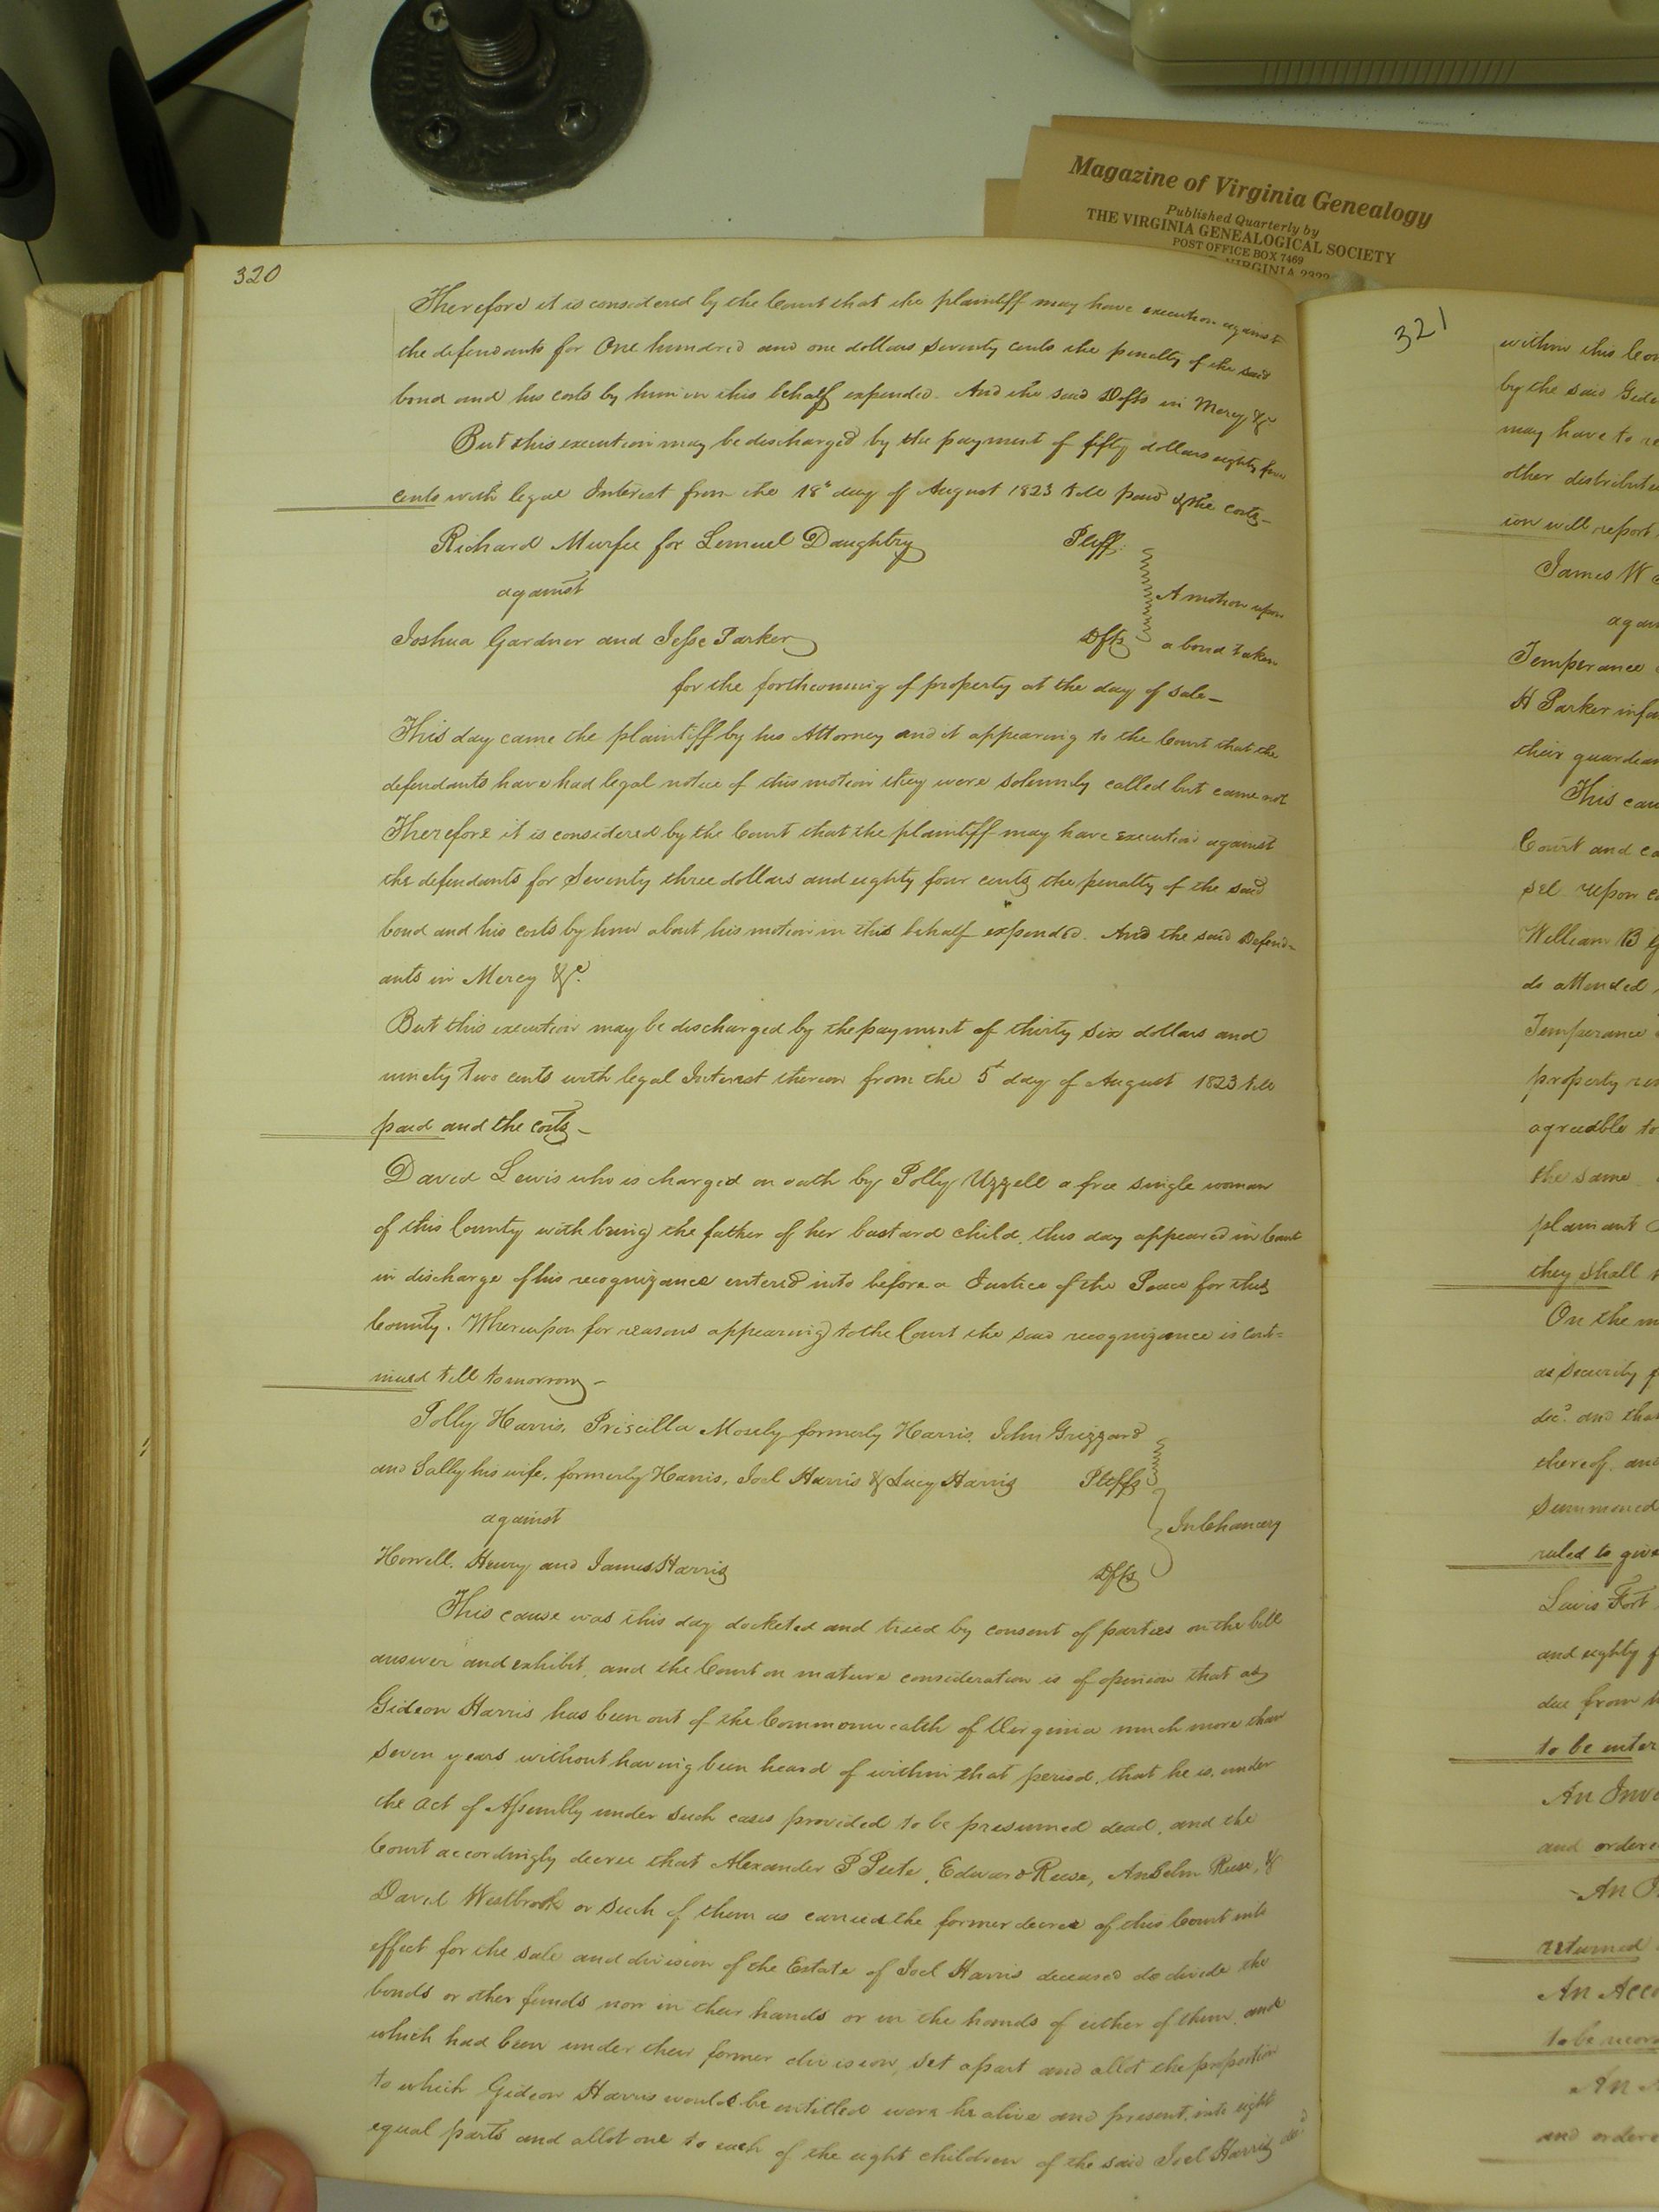 Magazine of Virginia Genealogy
Published Quarterly by
THE VIRGINIA GENEALOGICAL SOCIETY
POST OFFICE BOX 7469
VIRGINIA
320
Therefore it is considered by the Court that the plaintiff may have execution against
the defendants for One hundred and one dollars Seventy cents the penalty of the said
bond and his costs by him in this behalf expended. And the said Defts in Mercy &c
But this execution may be discharged by the payment of fifty dollars eighty five
cents with legal Interest from the 18th day of August 1823 till paid & the costs -
Richard Murfee for Lemuel Daughtry Pltff.
against
A motion upon
Joshua Gardner and Jesse Parker Dfts a bond taken
for the forthcoming of property at the day of sale -
This day came the plaintiff by his Attorney and it appearing to the Court that the
defendants have had legal notice of this motion they were solemnly called but came not
Therefore it is considered by the Court that the plaintiff may have execution against
the defendants for Seventy three dollars and eighty four cents the penalty of the said
bond and his costs by him about his motion in this behalf expended. And the said Defend-
ants in Mercy &c.
But this execution may be discharged by the payment of thirty Six dollars and
ninety Two cents with legal Interest thereon from the 5t day of August 1823 till
paid and the costs -
David Lewis who is charged on oath by Polly Uzzell a free single woman
of this County with being the father of her bastard child, this day appeared in Court
in discharge of his recognizance entered into before a Justice of the Peace for this
County. Whereupon for reasons appearing to the Court the said recognizance is cont=
inued till tomorrow -
Polly Harris, Priscilla Mosely formerly Harris, John Grizzard
and Sally his wife, formerly Harris, Joel Harris & Lucy Harris Pltffs
against
In Chancery
Howell, Henry and James Harris Dfts
This cause was this day docketed and tried by consent of parties on the bill
answer and exhibit, and the Court on mature consideration is of opinion that as
Gideon Harris has been out of the Commonwealth of Virginia much more than
Seven years without having been heard of within that period, that he is, under
the act of Assembly under such cases provided to be presumed dead, and the
Court accordingly decree that Alexander P Peete, Edward Reese, Anselm Reese, &
David Westbrook or such of them as carried the former decree of this Court into
effect for the sale and division of the Estate of Joel Harris deceased do divide the
bonds or other funds now in their hands or in the hands of either of them, and
which had been under their former division, set apart and allot the proportion
to which Gideon Harris would be entitled were he alive and present, into eight
equal parts and allot one to each of the eight children of the said Joel Harris decd
321
within this
by the said
may have to
other
ion will report
James W
Temperance
H Parker
their guardian
This
Court and
sel upon
William B
do attended
Temperance
property
agreeable to
the same
plainant
they shall
On the
as Security
decd. and that
thereof, and
Summoned
ruled to give
Lavis Fort
and eighty
due from
to be
An
and
An
returned
An
to be
An
and